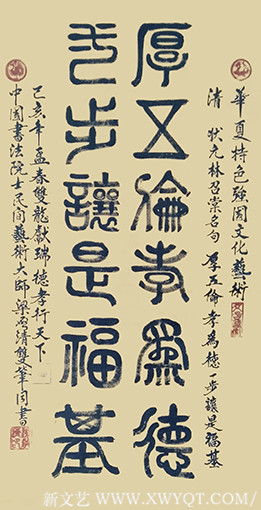 華夏特色強國文化藝術
清 狀元林召棠名句 厚五倫孝為德一步讓是福基
厚五倫孝為德
一步讓是福基
己亥年孟春雙龍獻瑞 德孝行天下
中國書法院士民間藝術大師梁 清雙筆同書
新文艺 WWW.XWYQT.COM/